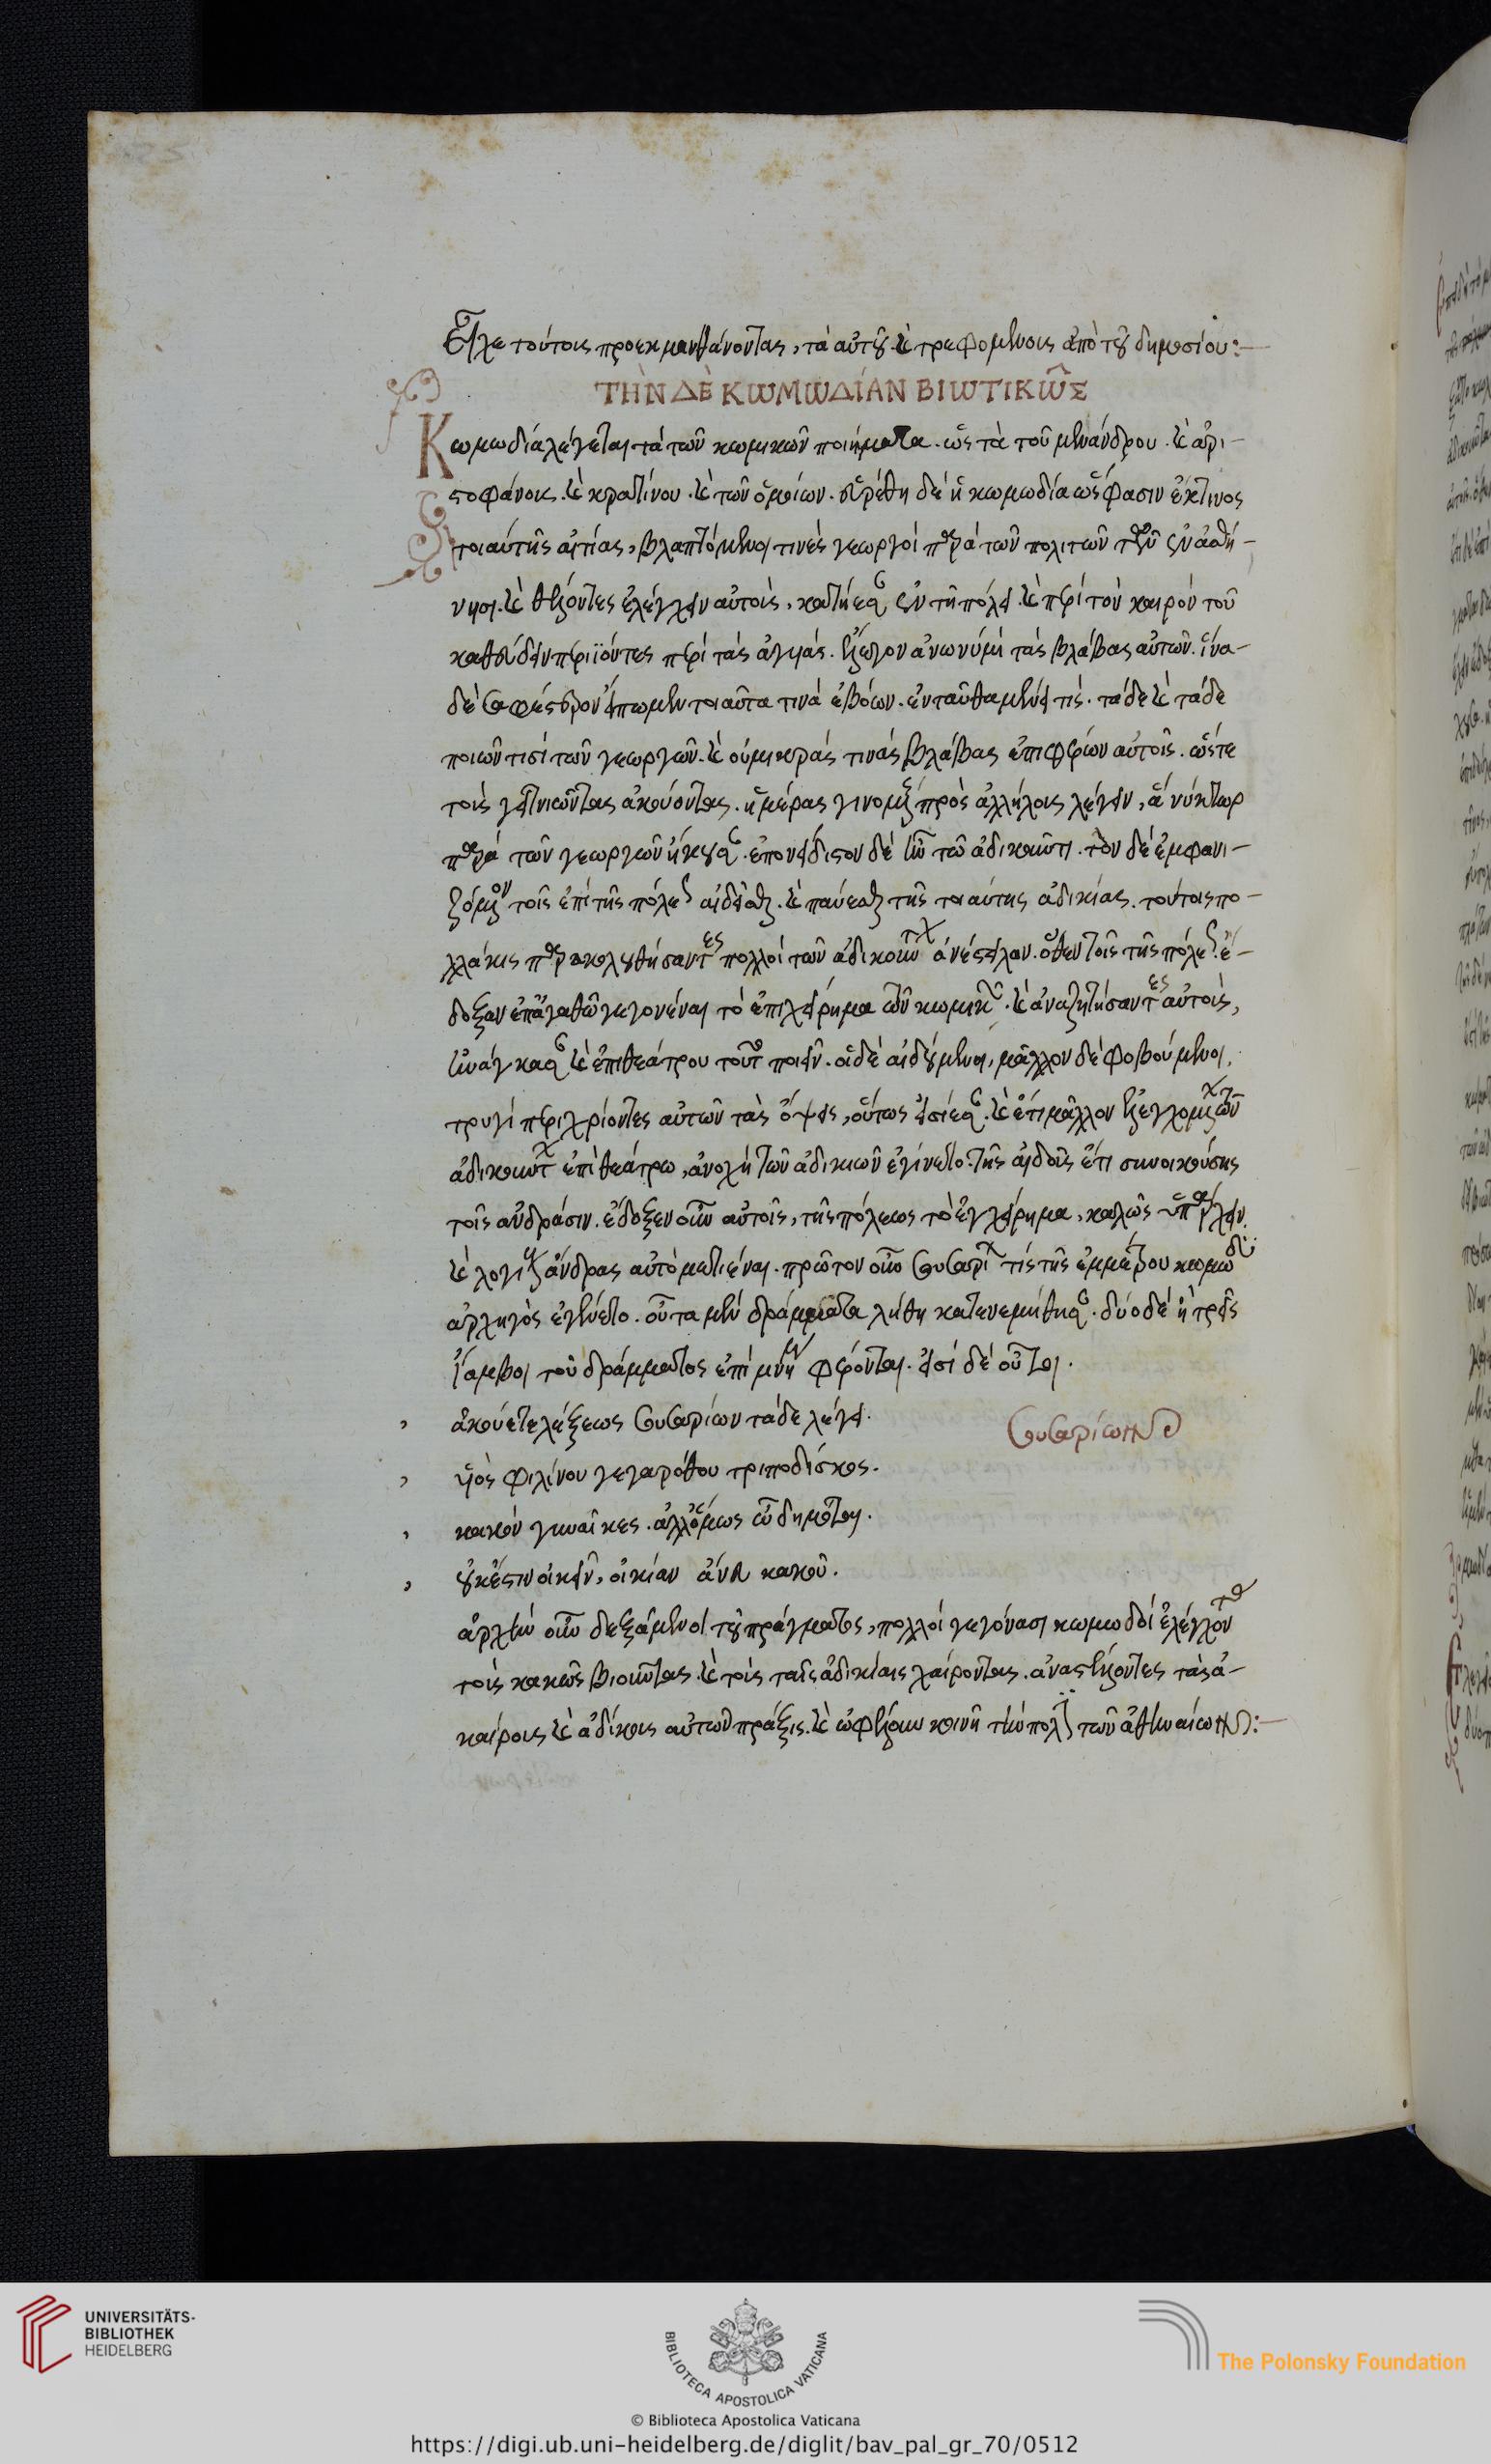 εἶχε τούτοις προεκμανθάνοντας, τὰ αὐτοῦ. καὶ τρεφομένοις ἀπὸ τοῦ δημοσίου:—
ΤΗῺΝ ΔῈ ΚΩΜΩΔΊΑΝ ΒΙΩΤΙΚΩ͂Σ
Κωμωδία λέγεται τὰ τῶν κωμικῶν ποιήματα. ὡς τὰ τοῦ μενάνδρου. καὶ ἀρι-
στοφάνους. καὶ κρατίνου. καὶ τῶν ὁμοίων. εὑρέθη δὲ ἡ κωμωδία ὥς φασιν ἔκ τινος
τοιαύτης αἰτίας, βλαπτόμενοι τινὲς γεωργοὶ παρὰ τῶν πολιτῶν τῶν ἐν ἀθή-
νησι. καὶ θέλοντες ἐλέγχειν αὐτοὺς, κατήεσαν ἐν τῇ πόλει. καὶ περὶ τὸν καιρὸν τοῦ
καθεύδειν περιϊόντες περὶ τὰς ἀγυιάς. ἔλεγον ἀνωνύμὶ τὰς βλάβας αὐτῶν. ἵνα-
δὲ σαφέστερον εἴπωμεν τοιαῦτα τινὰ ἐβόων. ἐνταῦθα μένει τίς. τάδε καὶ τάδε
ποιῶν τισὶ τῶν γεωργῶν. καὶ οὐ μικράς τινὰς βλάβας ἐπιφέρων αὐτοῖς. ὥστε
τοὺς γειτνιῶντας ἀκούοντας. ἡμέρας γινομένης πρὸς ἀλλήλους λέγειν, ἃ νύκτωρ
παρὰ τῶν γεωργῶν ἤκουσαν. ἐπονείδιστον δὲ ἦν τῶ ἀδικοῦντι. τὸν δὲ ἐμφανι-
ζόμενον τοῖς ἐπὶ τῆς πόλεως αἰδεῖσθαι. καὶ παύεσθαι τῆς τοιαύτης ἀδικίας. τούτοις πο-
λλάκις παρακολουθήσαντες πολλοὶ τῶν ἀδικούντων ἀνέστειλαν. ὅθεν τοῖς τῆς πόλεως ἔ-
δοξαν ἐπ' ἀγαθῶ γεγονέναι τὸ ἐπιχείρημα τῶν κωμικῶν. καὶ ἀναζητήσαντες αὐτοὺς,
ἠνάγκασαν καὶ ἐπὶ θεάτρου τοῦτο ποιεῖν. οἱ δὲ αἰδούμενοι, μᾶλλον δὲ φοβούμενοι,
τρυγὶ περιχρίοντες αὐτῶν τὰς ὄψεις, οὕτως εἰσίεσαν. καὶ ἔτι μᾶλλον ἐλεγχομένων τῶν
ἀδικούντων ἐπὶ θεάτρω, ἀνοχὴ τῶν ἀδικιῶν ἐγίνετο. τῆς αἰδοῦς ἔτι συνοικούσης
τοῖς ἀνδράσιν. ἔδοξεν οὖν αὐτοῖς, τῆς πόλεως τὸ ἐγχείρημα, καλῶς ὑπάρχειν.
καὶ λογικοὺς ἄνδρας αὐτὸ μετιέναι. πρῶτον οὖν σουσαρίων τίς τῆς ἐμμέτρου κωμωδίας
ἀρχηγὸς ἐγένετο. οὗ τὰ μὲν δράμματα λήθη κατενεμήθησαν. δύο δὲ ἢ τρεῖς
ἴαμβοι τοῦ δράμματος ἐπὶ μνήμην φέρονται. εἰσὶ δὲ οὗτοι.
ἀκούετε λέξεως σουσαρίων τάδε λέγει. σουσαρίων
υἱὸς φιλίνου γεγαρόθου τριποδίσκος.
κακὸν γυναῖκες. ἀλλ' ὅμως ὦ δημόται.
οὐκ ἔστιν οἰκεῖν, οἰκίαν ἄνευ κακοῦ.
ἀρχὴν οὖν δεξάμενοι τοῦ πράγματος, πολλοὶ γεγόνασι κωμωδοὶ ἐλέγχοντες
τοὺς κακῶς βιοῦντας. καὶ τοὺς ταῖς ἀδικίαις χαίροντας. ἀναστέλλοντες τὰς ἀ-
καίρους καὶ ἀδίκους αὐτῶν πράξις. καὶ ὠφέλουν κοινῇ τὴν πόλιν τῶν ἀθηναίων:—
UNIVERSITÄTS-
BIBLIOTHEK
HEIDELBERG
BIBLIOTECA APOSTOLICA VATICANA
The Polonsky Foundation
© Biblioteca Apostolica Vaticana
https://digi.ub.uni-heidelberg.de/diglit/bav_pal_gr_70/0512